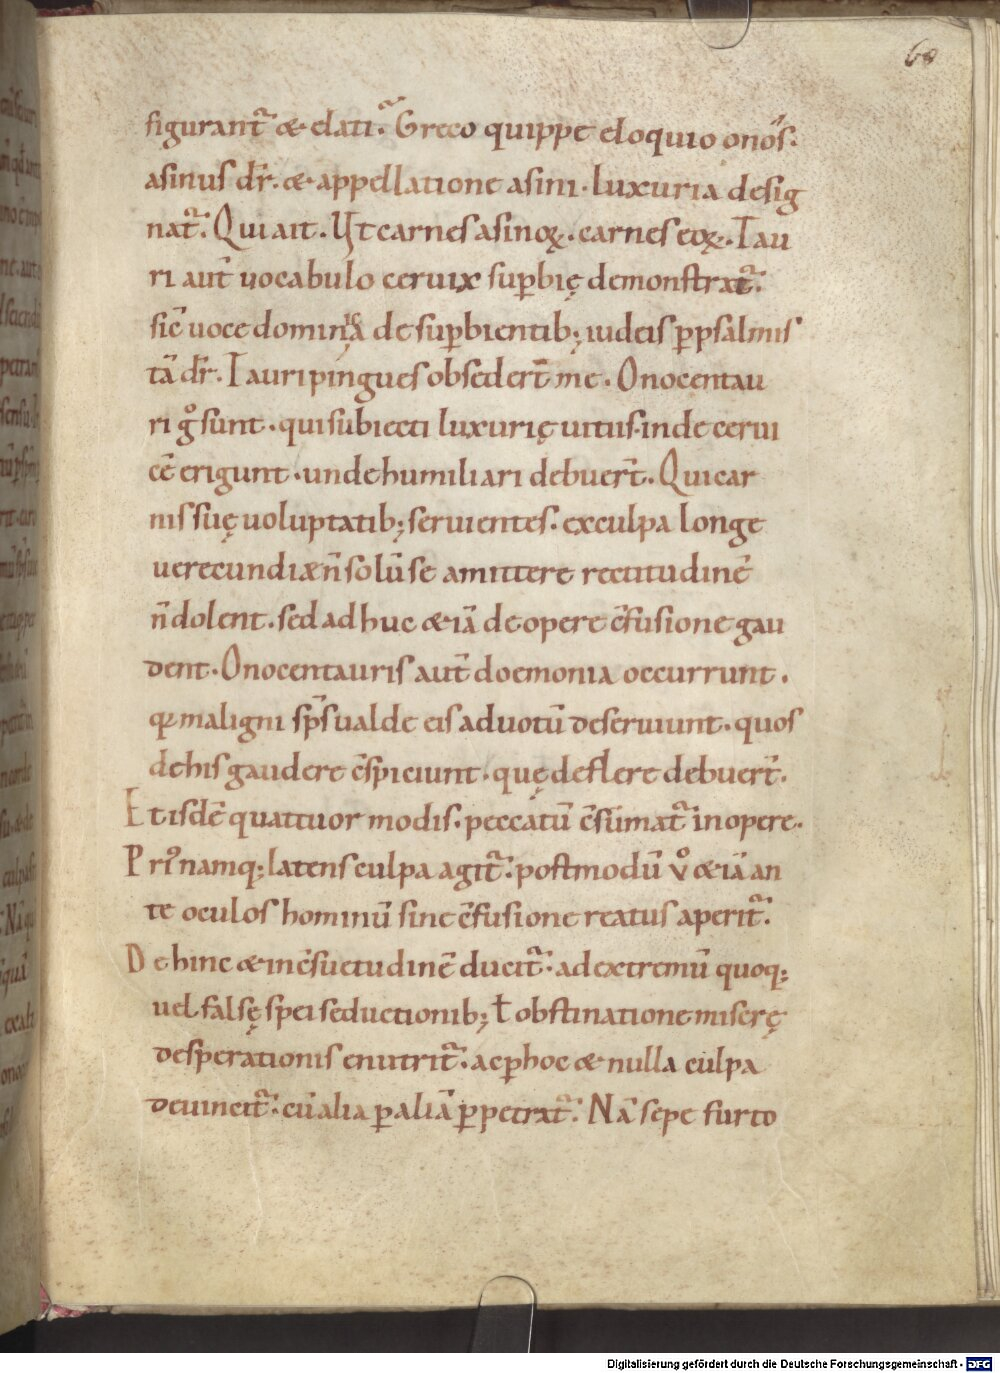 60
figurant᷑ & elati᷑. Greco quippe eloquio onos.
asinus dr̄. & appellatione asini. luxuria desig
nat᷑. Qui ait. Ut carnes asinoꝝ. carnes eoꝝ. Tau
ri aut̄ vocabulo ceruix suꝑbię demonstrat᷑.
sic̄ uoce dominica de suꝑbientib; iudeis ꝑ psalmis
tā dr̄. Tauri pingues obseder̄t me. Onocentau
ri gͦ sunt. qui subiecti luxurię uitiis. inde cerui
cē erigunt. unde humiliari debuer̄t. Qui car
nis suę uoluptatib; seruientes. ex culpa longe
uerecundiæ n̄ solū se amittere rectitudinē
n̄ dolent. sed adhuc & iā de opere c̄fusione gau
dent. Onocentauris aut̄ doemonia occurrunt.
qꝛ maligni sp̄s ualde eis ad uotū deseruiunt. quos
de his gaudere c̄spiciunt. quę deflere debuer̄t.
Et isdē quattuor modis. peccatū c̄sūmat᷑ in opere.
Priͦ namq; latens culpa agit᷑. postmodū vͦ & iā an
te oculos hominū sine c̄fusione reatus aperit᷑.
Dehinc & in c̄suetudinē ducit᷑. ad extremū quoq;
uel falsę spei seductionib; ƚ obstinatione miserę
desperationis enutrit᷑. ac ꝑ hoc & nulla culpa
deuincit᷑. cū alia ꝑ aliā ꝑpetrat᷑. Nā sepe furto
Digitalisierung gefördert durch die Deutsche Forschungsgemeinschaft - DFG